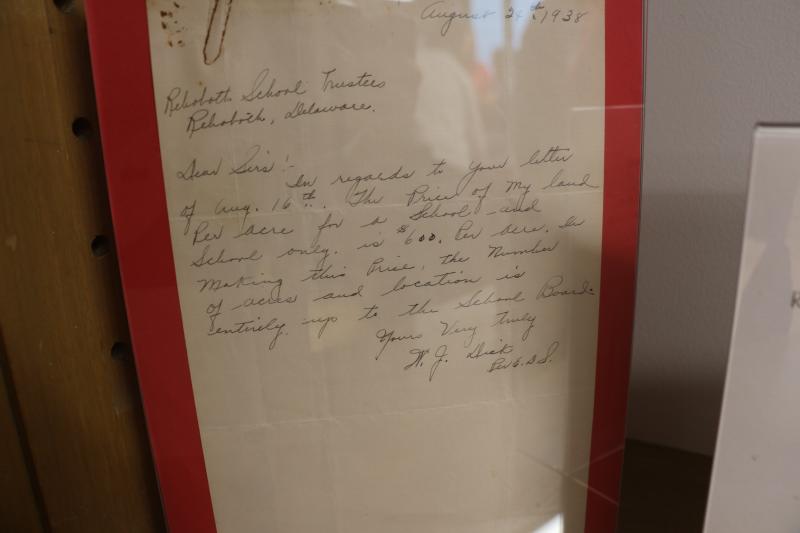 August 24th, 1938
Rehoboth School Trustees
Rehoboth, Delaware.
Dear Sirs!-
In regards to your letter
of Aug. 16th. The Price of My land
Per acre for a School and
School only. is $600. Per acre. In
Making this Price, the Number
of acres and location is
entirely up to the School Board.
Yours Very Truly
W. J. Dick
Per